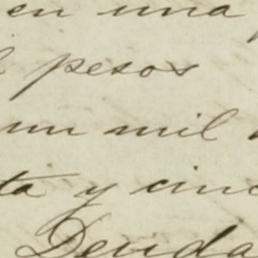 en una
pesos
un mil
ta y cinc
Deuda